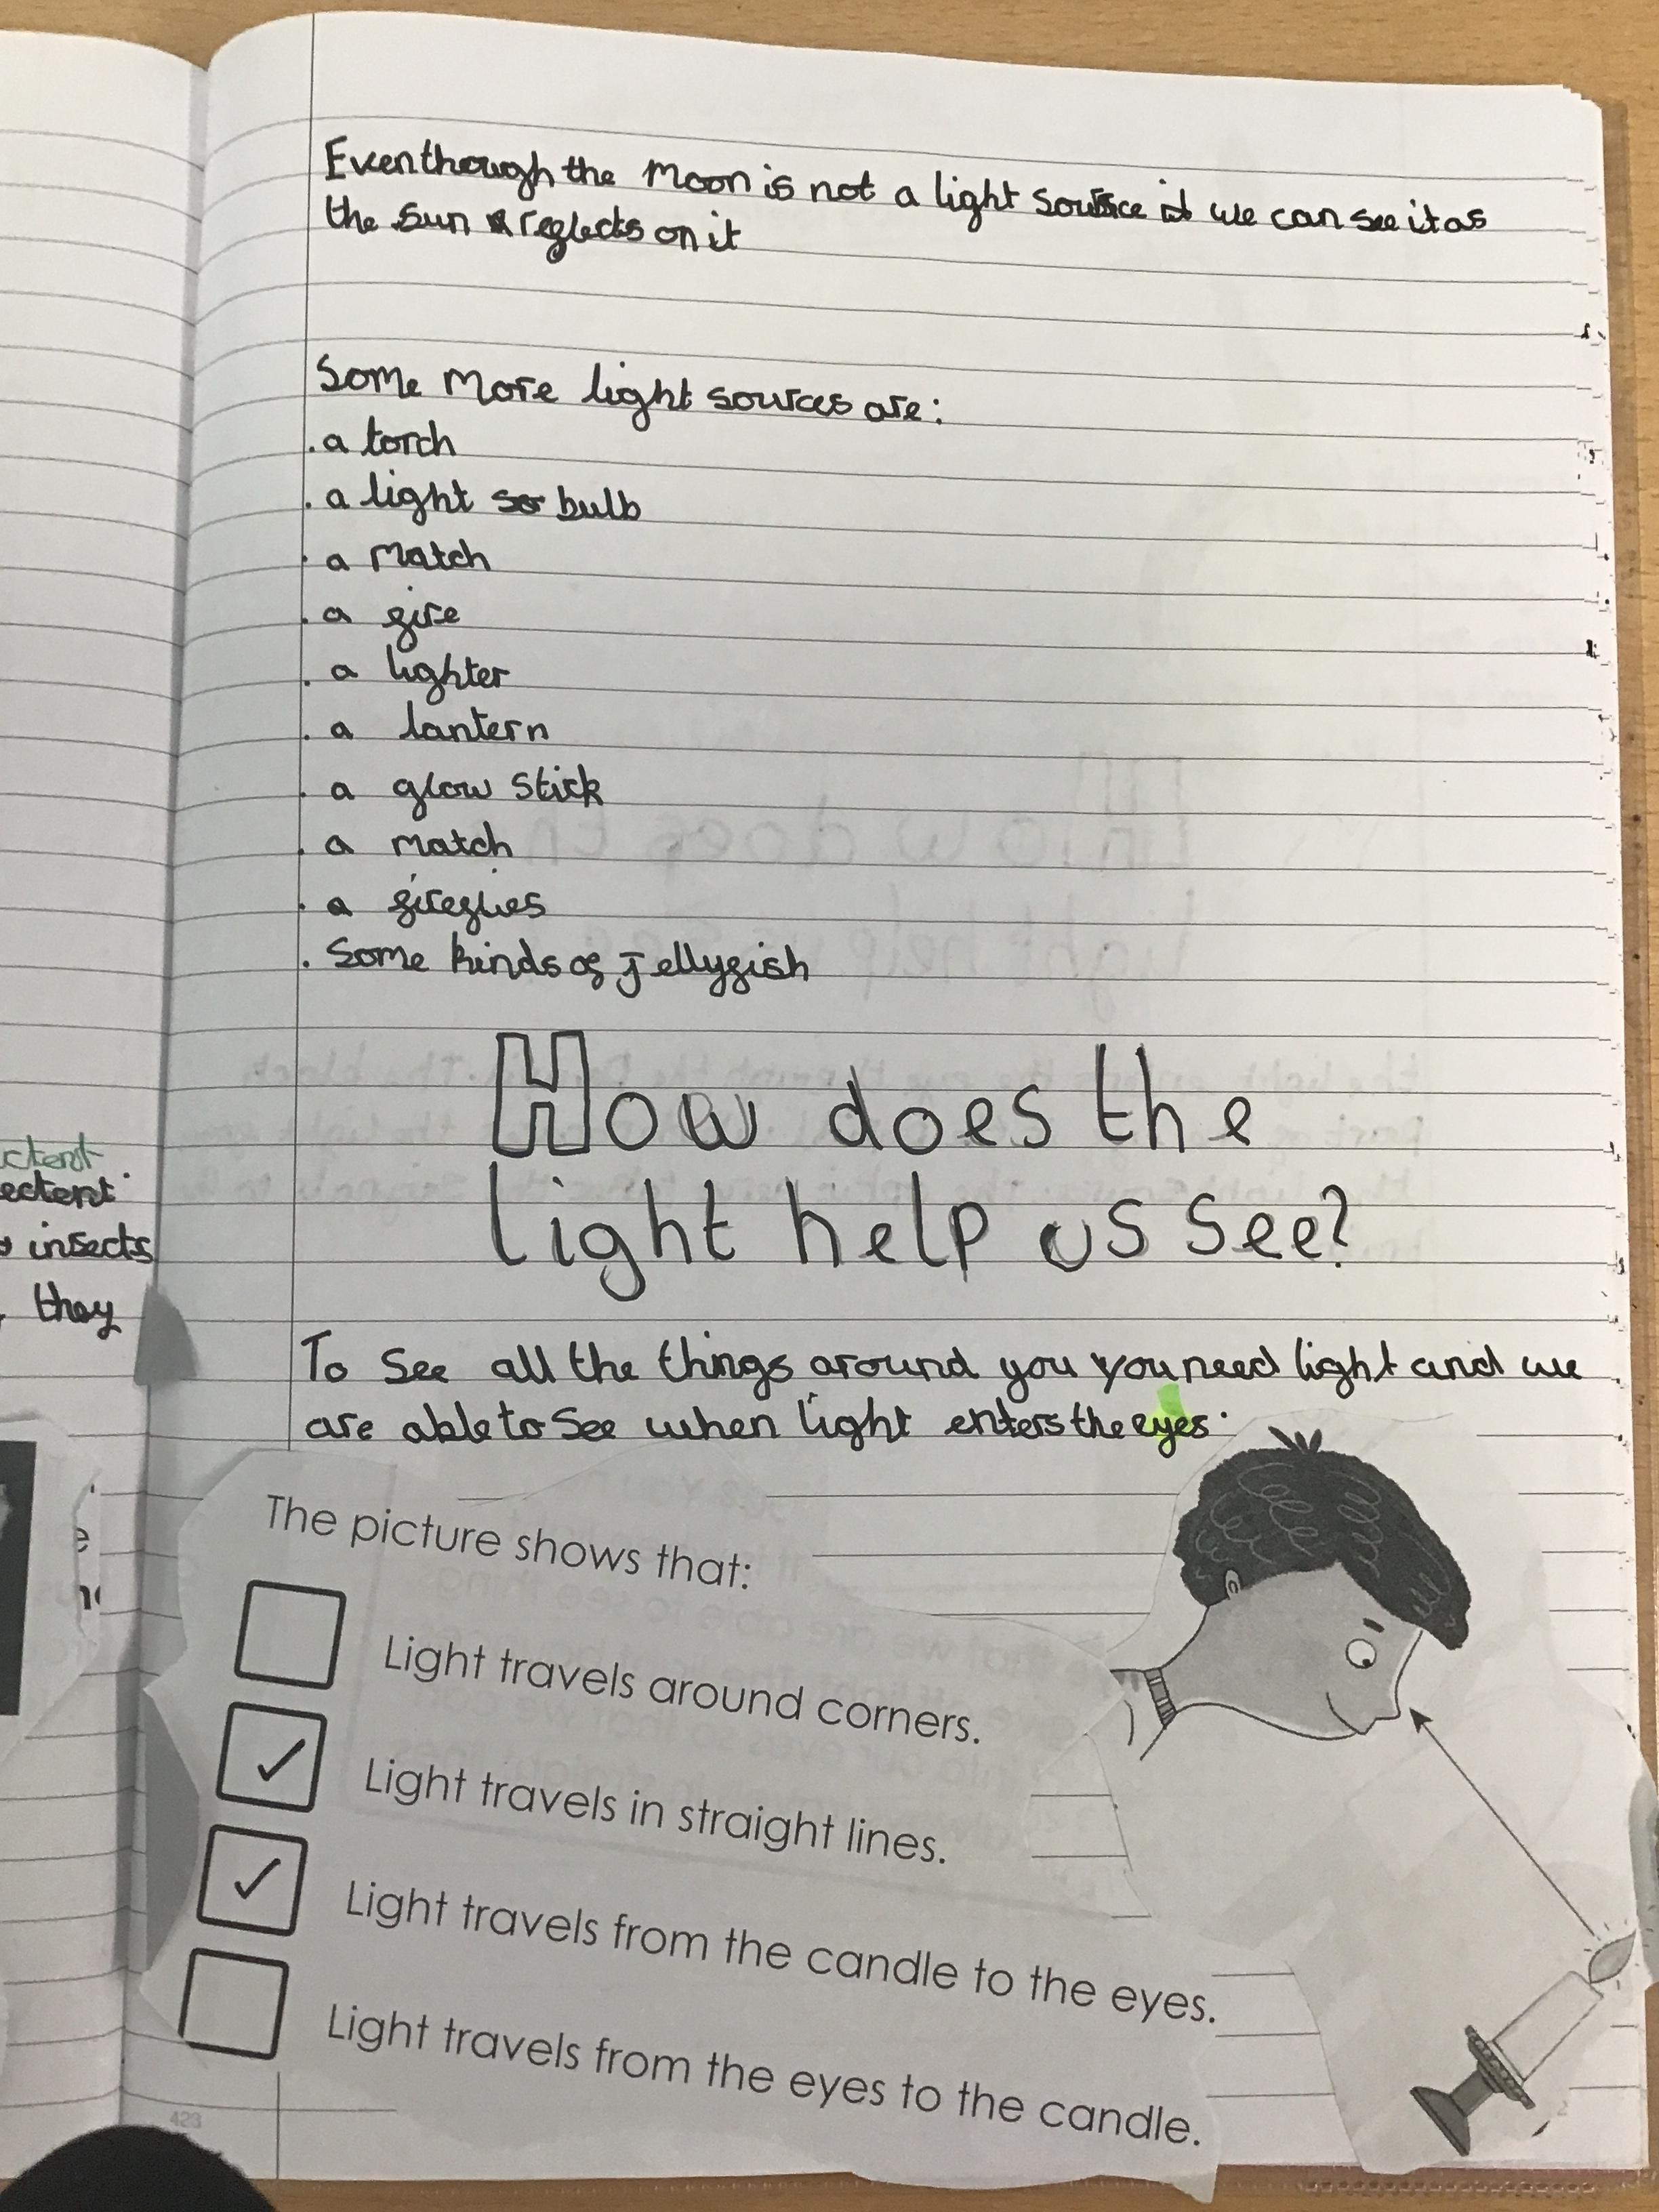 Eventhough the Moon is not a light source it we can see it as
the sun reflects on it
Some More light sources are:
. a torch
. a light so bulb
. a match
. a fire
. a lighter
. a lantern
. a glow stick
. a match
. a fireflies
. Some kinds of Jellyfish
How does the
light help us see?
To See all the things around you you need light and we
are able to See when light enters the eyes.
The picture shows that:
Light travels around corners.
✓ Light travels in straight lines.
✓ Light travels from the candle to the eyes.
Light travels from the eyes to the candle.
insects
they
423